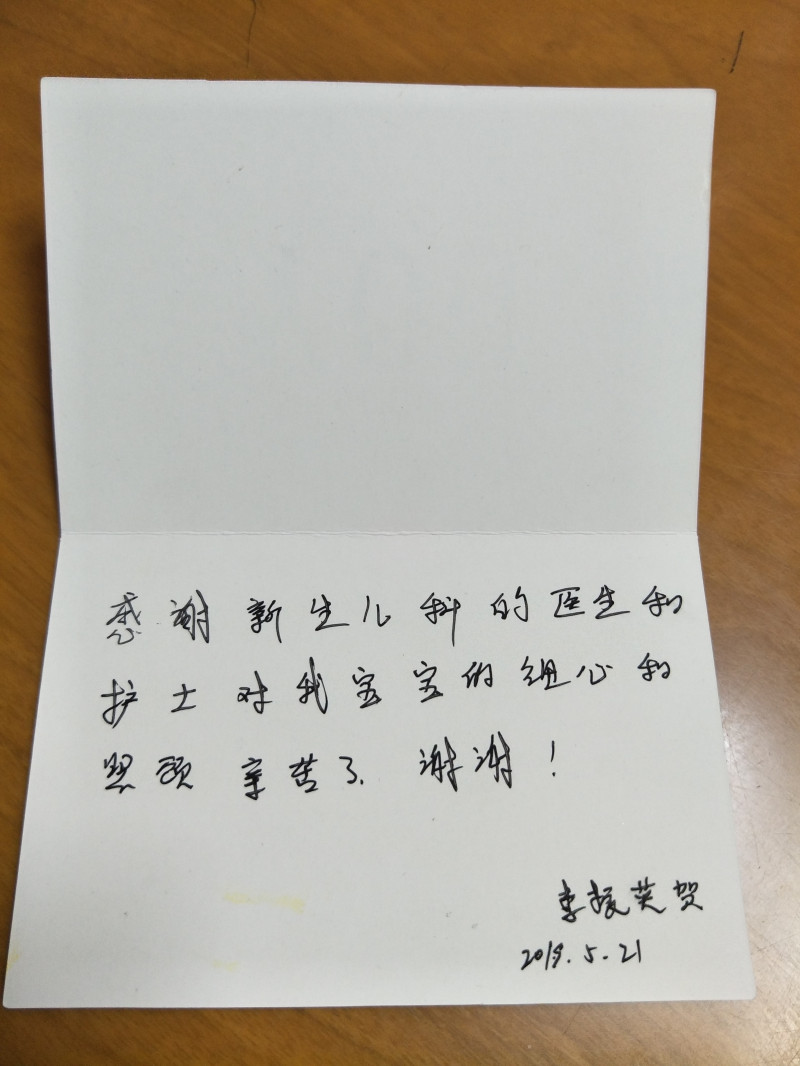 感谢新生儿科的医生和
护士对我宝宝的细心和
照顾 辛苦了 谢谢！
李振英贺
2019.5.21